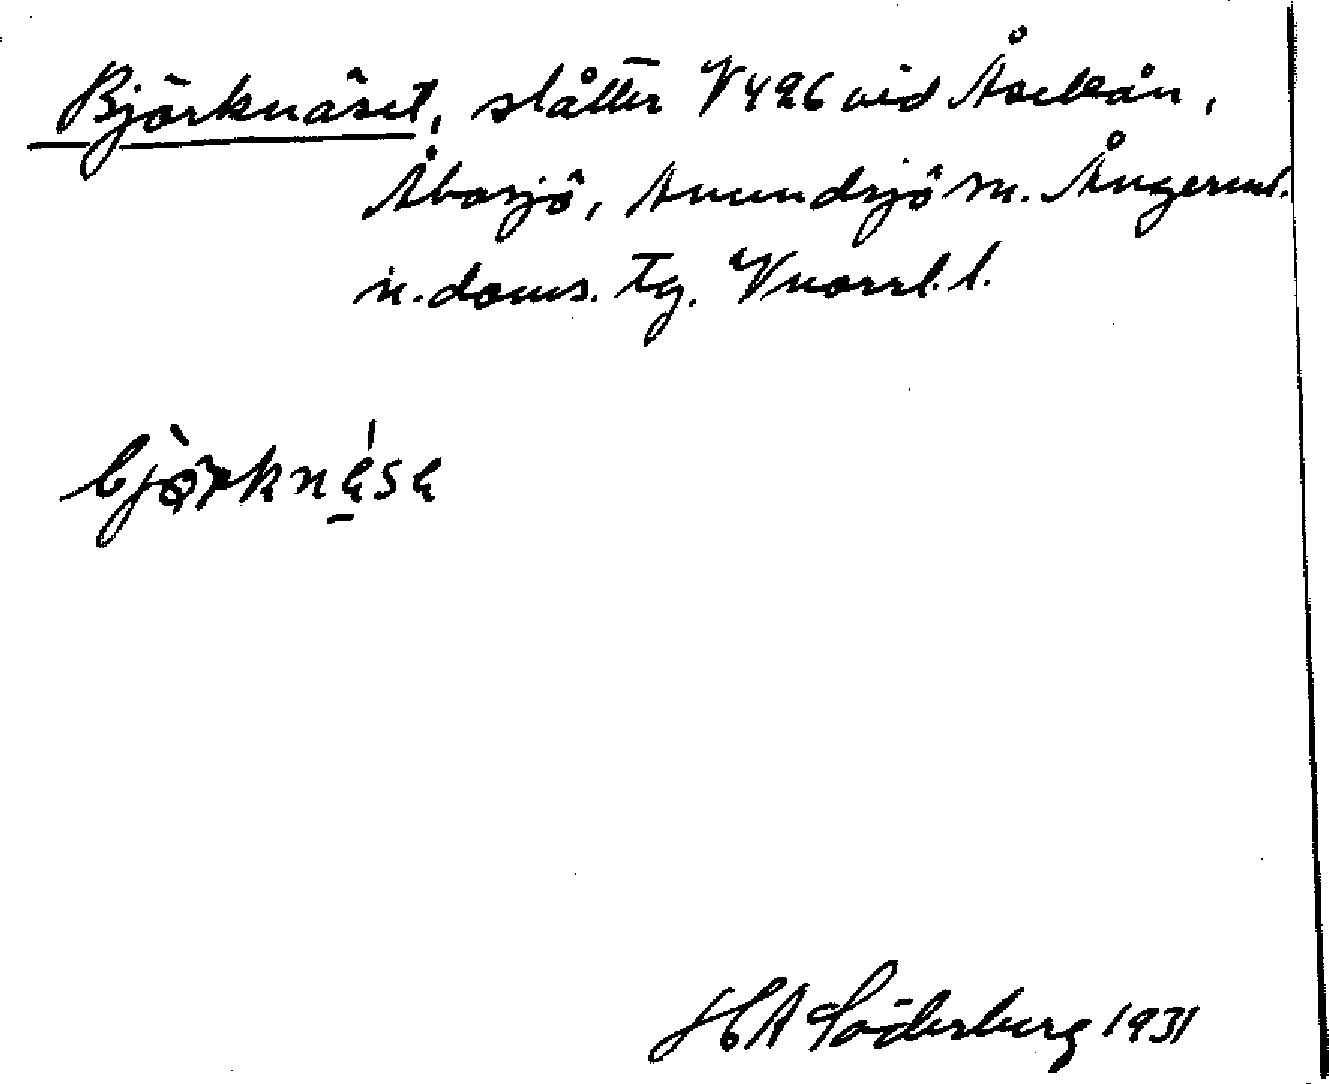 Björknäset, slåtter V426 vid Åselån,
Åbosjö, Anundsjö sn. Ångerml.
n. doms. tg. Vnorrl. l.
bjørknęsę
HA Söderberg 1931